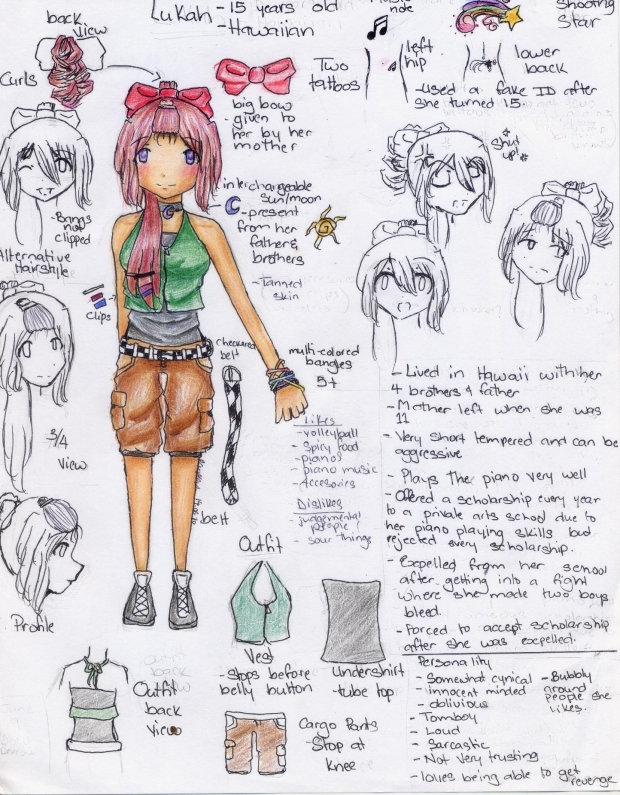 back
view
Lukah - 15 years old
- Hawaiian
note
Shooting
Star
Curls
Two
tattoos
left
hip
lower
back
- used a fake ID after
she turned 15
big bow
- given to
her by her
mother
Shut
up!
interchangeable
sun/moon
- present
from her
father &
brothers
- Bangs
not
clipped
Alternative
Hairstyle
- Tanned
skin
clips
checkered
belt
multi-colored
bangles
5+
3/4
View
Likes
- volleyball
- spicy food
- pianos
- piano music
- Accesories
Dislikes
- judgemental
people
- sour things
belt
Profile
- Lived in Hawaii with her
4 brothers & father
- Mother left when she was
11
- Very short tempered and can be
aggressive
- Plays the piano very well
- Offered a scholarship every year
to a private arts school due to
her piano playing skills but
rejected every scholarship.
- Expelled from her school
after getting into a fight
where she made two boys
bleed.
- Forced to accept scholarship
after she was expelled.
Outfit
Vest
- Stops before
belly button
Undershirt
- tube top
Outfit
back
view
Cargo Pants
- Stop at
knee
Personality
- Somewhat cynical
- innocent minded
- oblivious
- Tomboy
- Loud
- Sarcastic
- Not very trusting
- loves being able to get
revenge
- Bubbly
around
people she
likes.